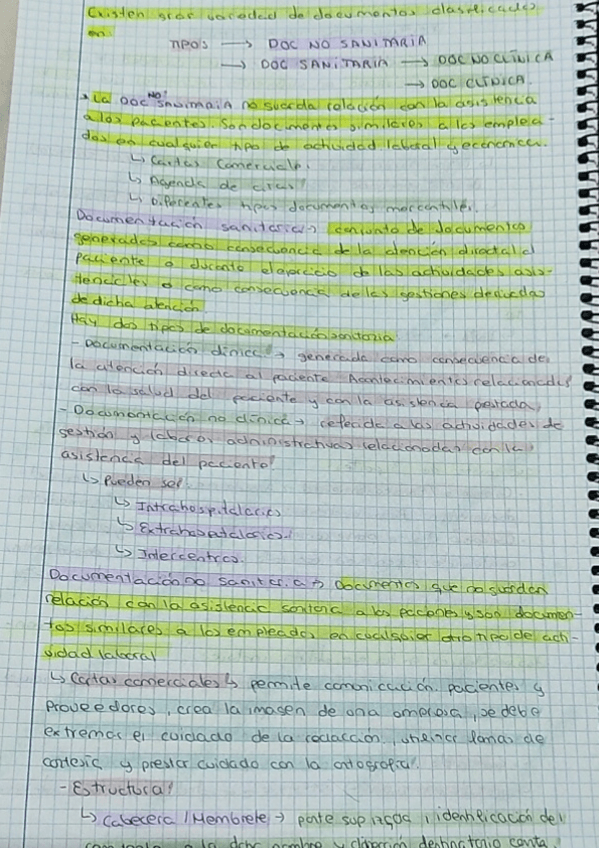 Existen gran variedad de documentos clasificados
en:
TIPOS → DOC NO SANITARIA
→ DOC SANITARIA → DOC NO CLÍNICA
→ DOC CLÍNICA.
La DOC NO SANITARIA no guarda relación con la asistencia
a los pacientes. Son documentos similares a los emplea-
dos en cualquier tipo de actividad laboral y económica.
↳ Cartas Comerciales.
↳ Agenda de citas
↳ Diferentes tipos documentos mercantiles.
Documentación sanitaria → conjunto de documentos
generados como consecuencia de la atención directa al
paciente o durante el ejercicio de las actividades asis-
tenciales o como consecuencia de las gestiones derivadas
de dicha atención
Hay dos tipos de documentación sanitaria
- Documentación clínica → generada como consecuencia de
la atención directa al paciente. Acontecimientos relacionados
con la salud del paciente y con la asistencia prestada
- Documentación no clínica → referida a las actividades de
gestión y labores administrativas relacionadas con la
asistencia del paciente
↳ Pueden ser:
↳ Intrahospitalarios
↳ Extrahospitalarios.
↳ Intercentros.
Documentación no sanitaria → Documentos que no guardan
relación con la asistencia sanitaria a los pacientes y son documen-
tos similares a los empleados en cualquier otro tipo de acti-
vidad laboral
↳ Cartas comerciales ↳ permite comunicación pacientes y
proveedores, crea la imagen de una empresa, se debe
extremar el cuidado de la redacción, formas de
cortesía y prestar cuidado con la ortografía.
- Estructura:
↳ Cabecera / Membrete → parte superior, identificación del
a la dcha nombre y dirección destinatario carta.